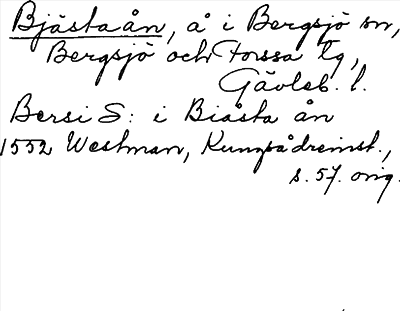 Bjästaån, å i Bergsjö sn,
Bergsjö och Forssa tg,
Gävleb. l.
Bersi S: i Biästa ån
1552 Westman, Kungsådremst.,
s. 57. orig.